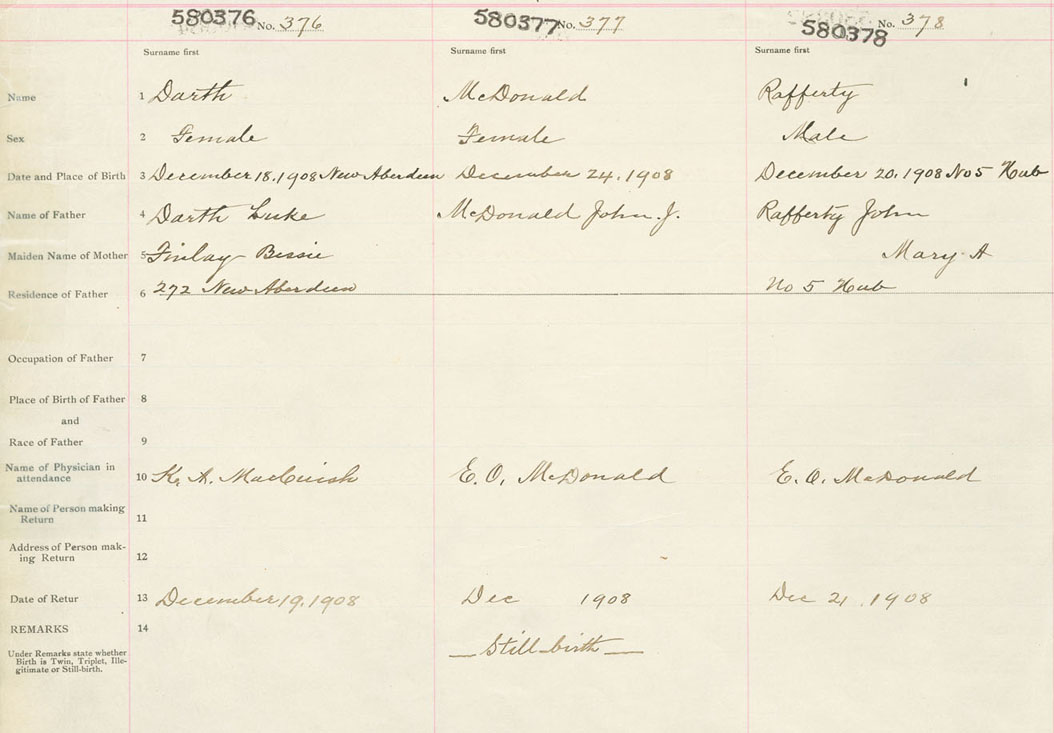 580376 No. 376 580377 No. 377 580378 No. 378
Surname first Surname first Surname first
Name 1 Darth McDonald Rafferty
Sex 2 Female Female Male
Date and Place of Birth 3 December 18, 1908 New Aberdeen December 24, 1908 December 20, 1908 No 5 Hub
Name of Father 4 Darth Luke McDonald John. J. Rafferty John
Maiden Name of Mother 5 Finlay Bessie Mary A
Residence of Father 6 272 New Aberdeen No 5 Hub
Occupation of Father 7
Place of Birth of Father 8
and
Race of Father 9
Name of Physician in
attendance 10 K. A. MacCuish E. O. McDonald E. O. McDonald
Name of Person making
Return 11
Address of Person mak-
ing Return 12
Date of Retur 13 December 19, 1908 Dec 1908 Dec 21, 1908
REMARKS 14
Under Remarks state whether
Birth is Twin, Triplet, Ille-
gitimate or Still-birth.
Still-birth